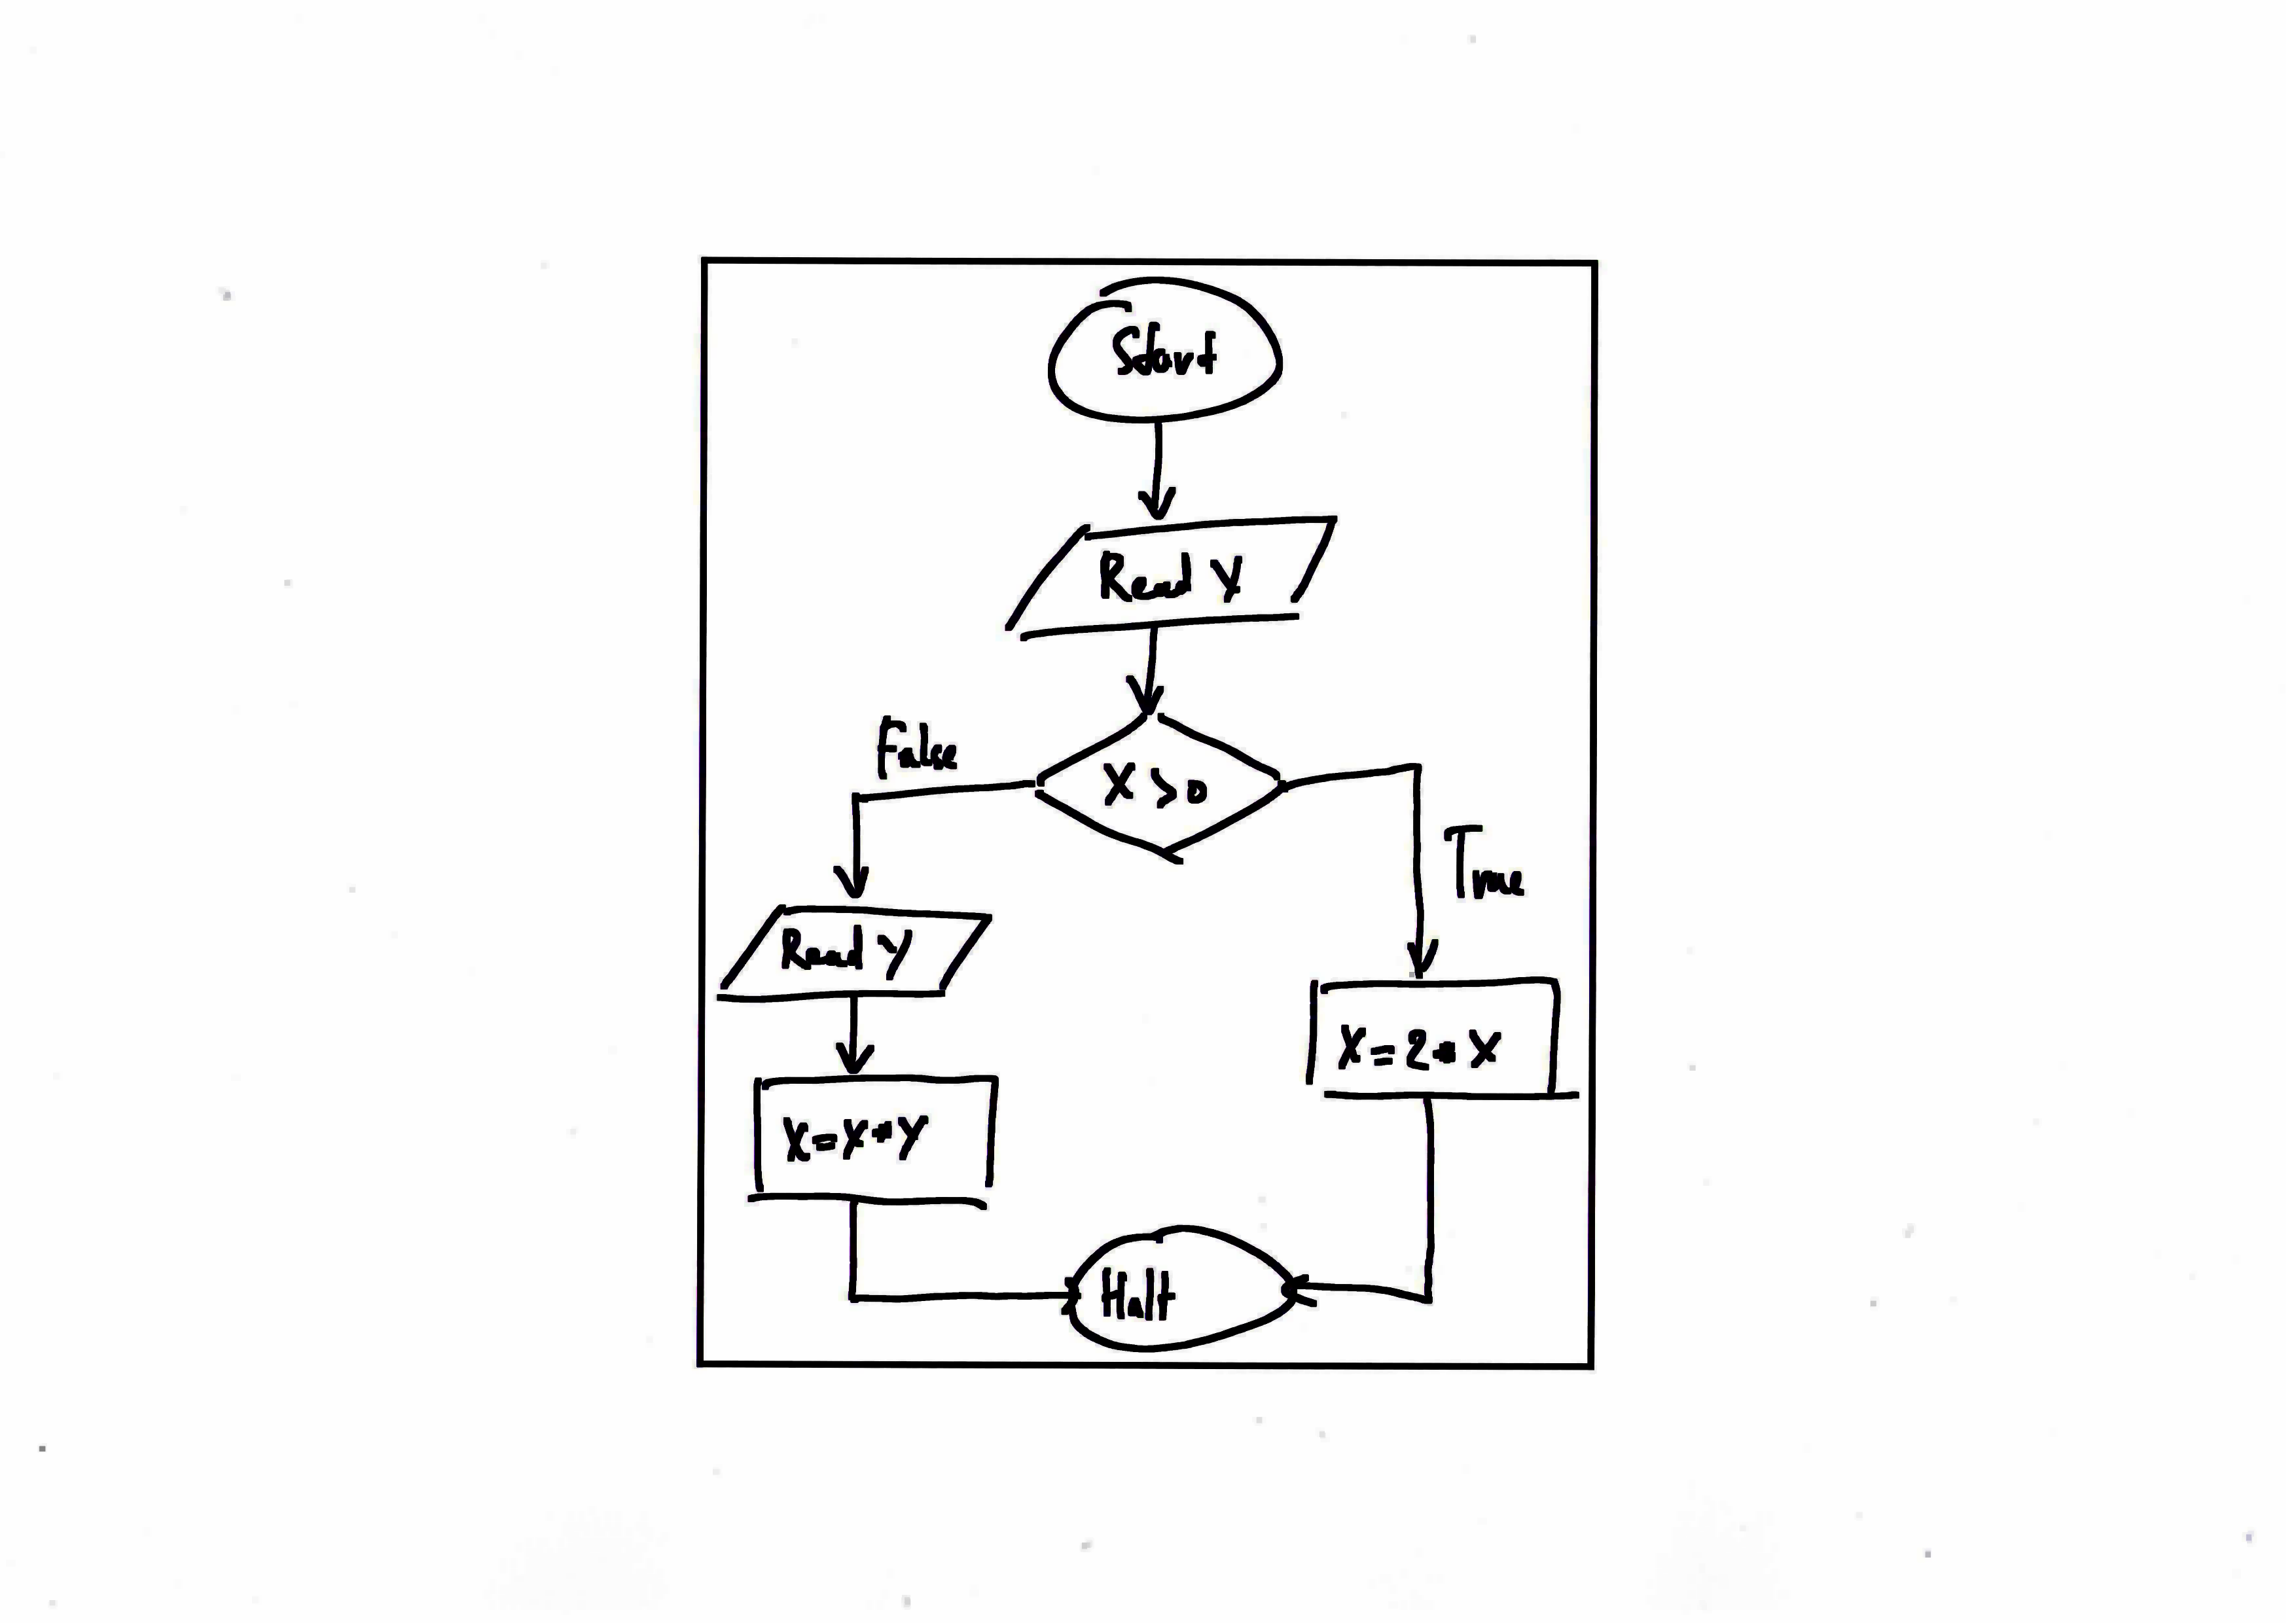 Start
Read Y
X > 0
False
True
Read Y
X = 2 * X
X = X + Y
Halt